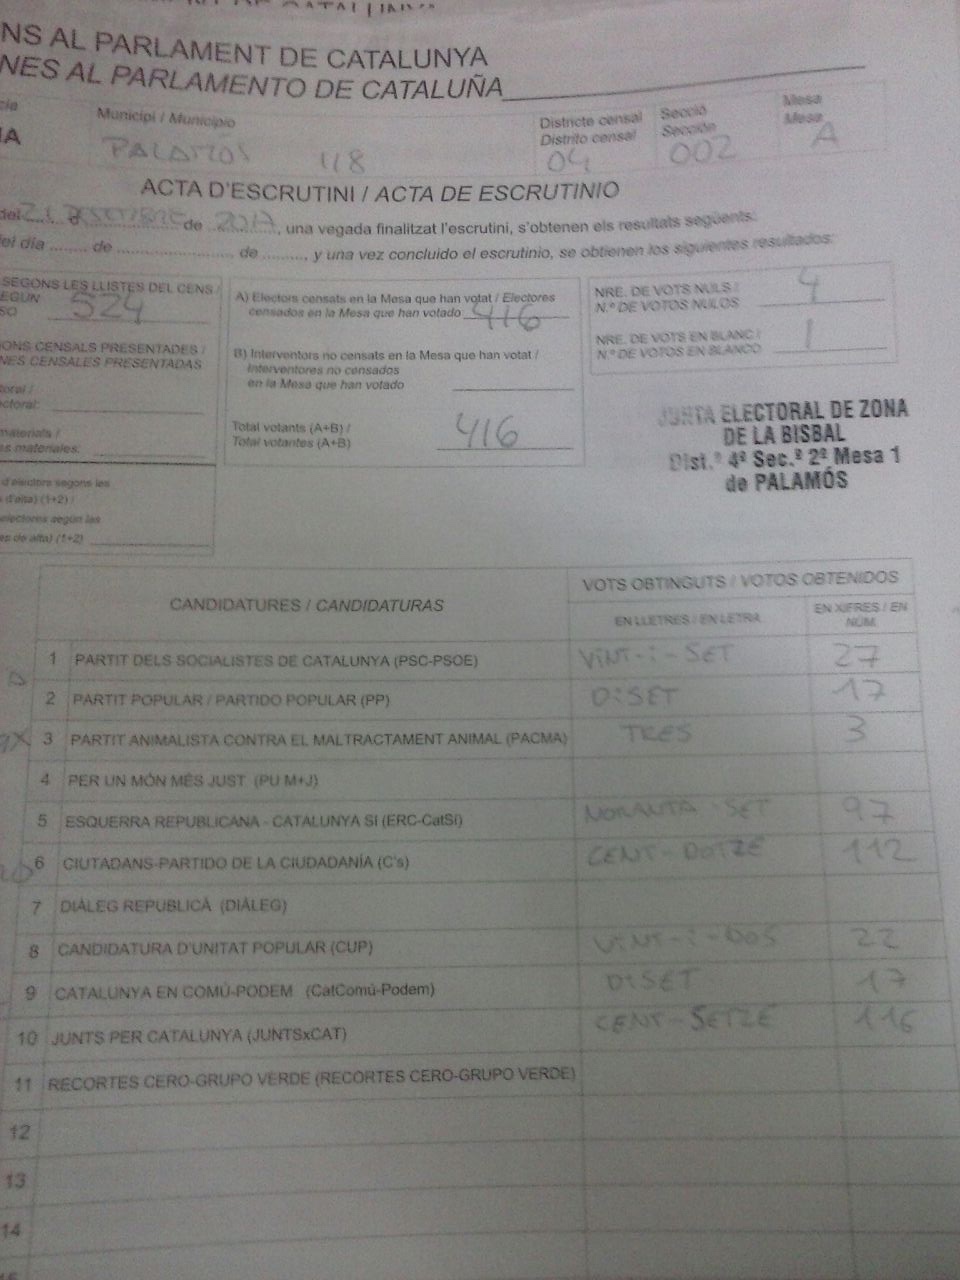 NS AL PARLAMENT DE CATALUNYA
NES AL PARLAMENTO DE CATALUÑA
Municipi / Municipio
PALAMOS 118
Districte censal
Distrito censal
04
Secció
Sección
002
Mesa
Mesa
A
ACTA D'ESCRUTINI / ACTA DE ESCRUTINIO
del 21 d de 2017, una vegada finalitzat l'escrutini, s'obtenen els resultats següents:
el día ........ de ........................ de ........, y una vez concluido el escrutinio, se obtienen los siguientes resultados:
SEGONS LES LLISTES DEL CENS /
EGÚN
SO 524
ONS CENSALS PRESENTADES /
NES CENSALES PRESENTADAS
toral /
ectoral:
materials /
s materiales:
d'electors segons les
d'alta) (1+2) /
electores según las
es de alta) (1+2)
A) Electors censats en la Mesa que han votat / Electores
censados en la Mesa que han votado 416
B) Interventors no censats en la Mesa que han votat /
Interventores no censados
en la Mesa que han votado
Total votants (A+B) /
Total votantes (A+B) 416
NRE. DE VOTS NULS /
N.º DE VOTOS NULOS 4
NRE. DE VOTS EN BLANC /
N.º DE VOTOS EN BLANCO 1
JUNTA ELECTORAL DE ZONA
DE LA BISBAL
Dist.º 4º Sec.ª 2ª Mesa 1
de PALAMÓS
CANDIDATURES / CANDIDATURAS
VOTS OBTINGUTS / VOTOS OBTENIDOS
EN LLETRES / EN LETRA
EN XIFRES / EN
NÚM.
1 PARTIT DELS SOCIALISTES DE CATALUNYA (PSC-PSOE) VINT-I-SET 27
2 PARTIT POPULAR / PARTIDO POPULAR (PP) DISET 17
3 PARTIT ANIMALISTA CONTRA EL MALTRACTAMENT ANIMAL (PACMA) TRES 3
4 PER UN MÓN MÉS JUST (PU M+J)
5 ESQUERRA REPUBLICANA - CATALUNYA SÍ (ERC-CatSí) NORANTA-SET 97
6 CIUTADANS-PARTIDO DE LA CIUDADANÍA (C's) CENT-DOTZE 112
7 DIÀLEG REPUBLICÀ (DIÀLEG)
8 CANDIDATURA D'UNITAT POPULAR (CUP) VINT-I-DOS 22
9 CATALUNYA EN COMÚ-PODEM (CatComú-Podem) DISET 17
10 JUNTS PER CATALUNYA (JUNTSxCAT) CENT-SETZE 116
11 RECORTES CERO-GRUPO VERDE (RECORTES CERO-GRUPO VERDE)
12
13
14